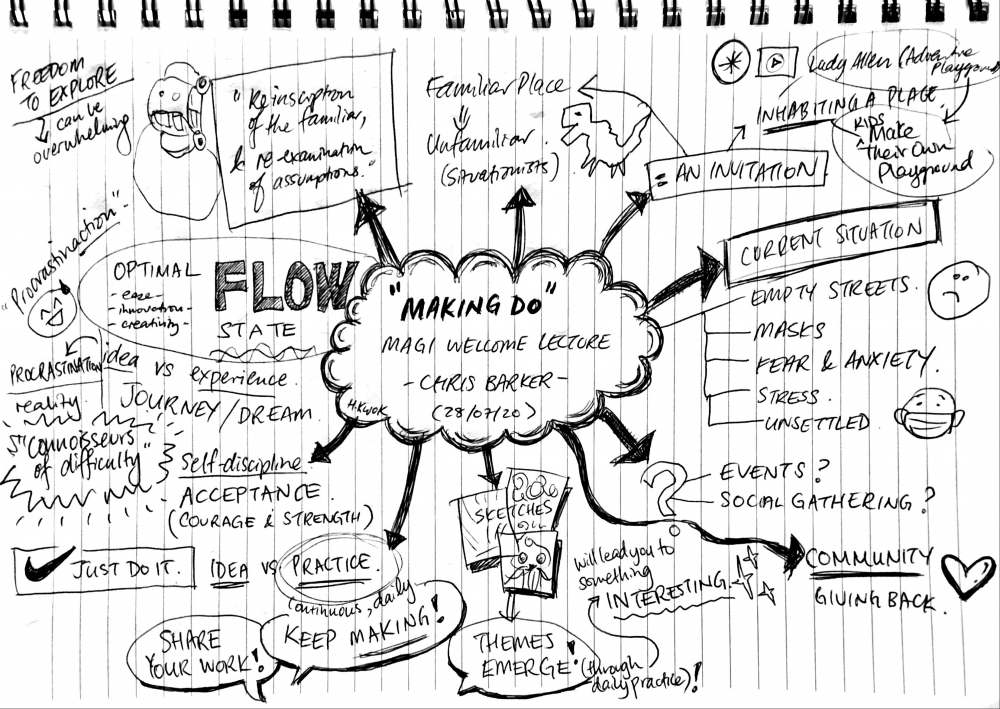 FREEDOM
TO EXPLORE
↳ can be
overwhelming
"Reinscription
of the familiar,
& re-examination
of assumptions."
Familiar Place
Unfamiliar
(Situationists)
Lady Allen (Adventure
Playground)
INHABITING A PLACE
KIDS
Make
Their Own
Playground
= AN INVITATION
CURRENT SITUATION
EMPTY STREETS.
MASKS
FEAR & ANXIETY.
STRESS.
UNSETTLED.
"Procrastinaction"
OPTIMAL
- ease -
- innovation -
- creativity -
FLOW
STATE
PROCRASTINATION
idea vs experience.
reality.
JOURNEY/DREAM.
"MAKING DO"
MAGI WELLCOME LECTURE
- CHRIS BARKER -
(28/07/20)
H.KWOK
"Connoisseurs
of difficulty"
Self-discipline.
ACCEPTANCE.
(COURAGE & STRENGTH)
JUST DO IT.
IDEA vs PRACTICE.
(continuous, daily
KEEP MAKING!
SHARE
YOUR WORK!
SKETCHES
THEMES
EMERGE!
(through
daily practice)!
will lead you to
something
INTERESTING.
?
EVENTS?
SOCIAL GATHERING?
COMMUNITY
GIVING BACK.